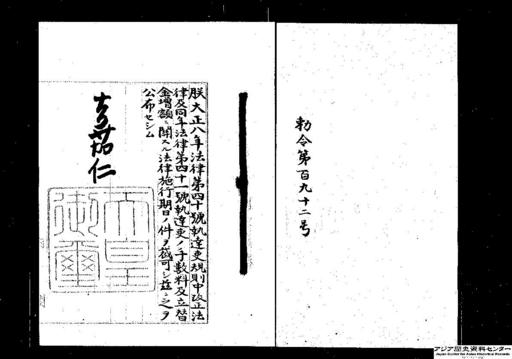 勅令第百九十二号
朕大正八年法律第四十號執達吏規則中改正法
律及同年法律第四十一號執達吏ノ手數料及立替
金增額ニ關スル法律施行期日ノ件ヲ裁可シ茲ニ之ヲ
公布セシム
嘉仁
天皇
御璽
アジア歴史資料センター
Japan Center for Asian Historical Records